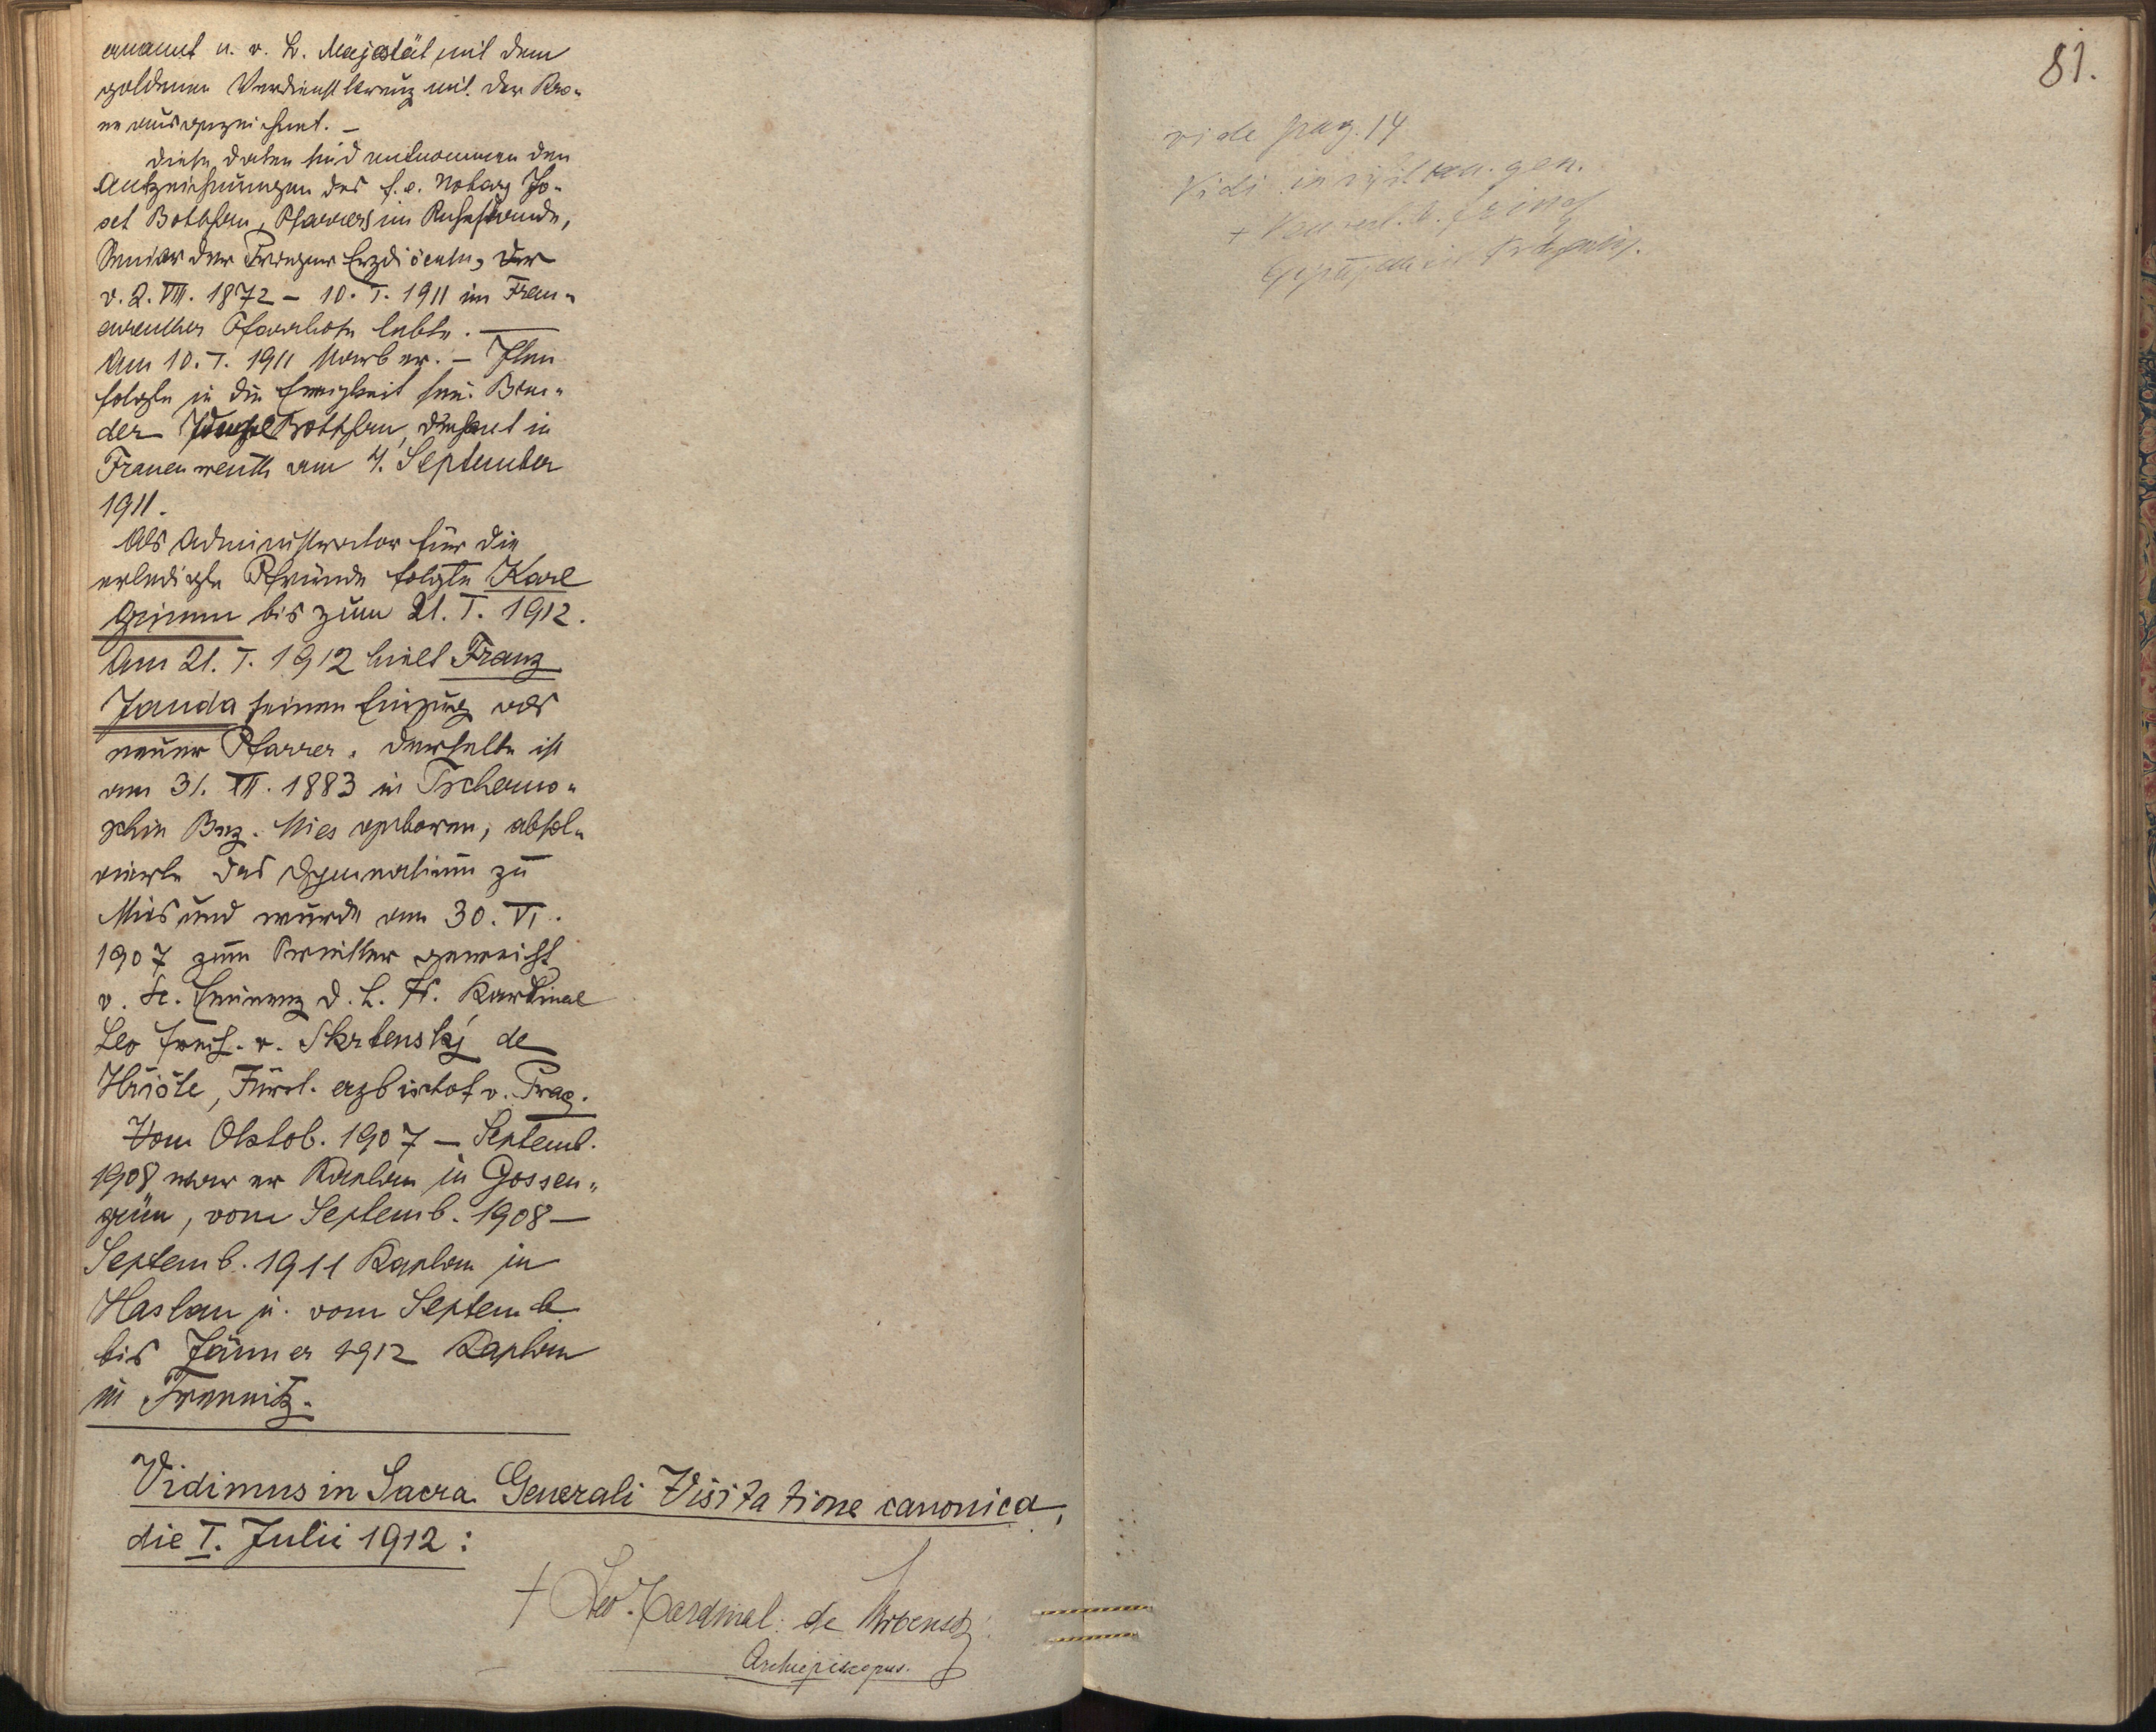 ernannt u. v. Sr. Majestät mit dem
goldenen Verdienstkreuz mit der Kro-
ne ausgezeichnet. —
Diese Daten sind entnommen den
Aufzeichnungen des f. e. Notars Jo-
sef Bothschen, Pfarrers im Ruhestande,
Senior der Prager Erzdiöcese, der
v. 2. VIII. 1872 – 10. I. 1911 im Frau-
enreuther Pfarrhofe lebte. —
Am 10. I. 1911 starb er. – Ihm
folgte in die Ewigkeit sein Bru-
der in
Frauenreuth am 4. September
1911.
Als Administrator für die
erledigte Pfründe folgte Karl
Grimm bis zum 21. I. 1912.
Am 21. I. 1912 hielt Franz
Janda seinen Einzug als
neuer Pfarrer. Derselbe ist
am 31. XII. 1883 in Tscherno-
schin Bez. Mies geboren, absol-
vierte das Gymnasium zu
Mies und wurde am 30. VI.
1907 zum Priester geweiht
v. Sr. Eminenz d. H. H. Kardinal
Leo Freih. v. Skrbenský de
Hříště, Fürst. erzbischof v. Prag.
Vom Oktob. 1907 – Septemb.
1908 war er Kaplan in Gossen-
grün, vom Septemb. 1908 –
Septemb. 1911 Kaplan in
Haslau u. vom Septemb.
bis Jänner 1912 Kaplan
in
Vidimus in Sacra Generali Visitatione canonica,
die I. Julii 1912:
† Leo Cardinal de Skrbenský
Archiepiscopus.
81.
vide pag. 14
Vidi in can. gen.